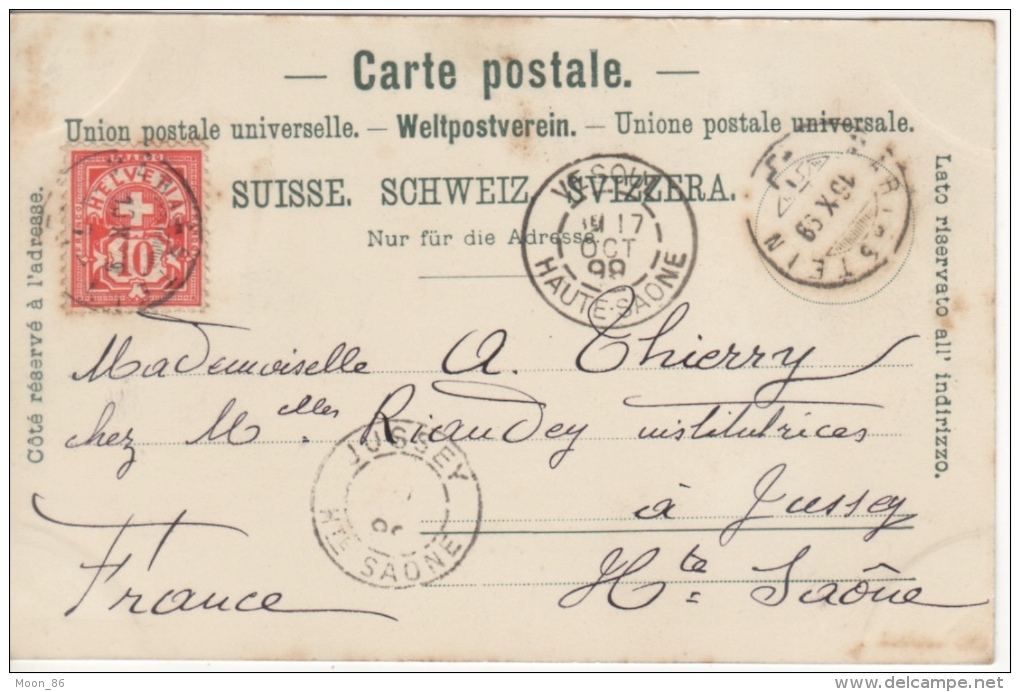 — Carte postale. —
Union postale universelle. — Weltpostverein. — Unione postale universale.
SUISSE. SCHWEIZ. SVIZZERA.
Nur für die Adresse.
Côté réservé à l'adresse.
Lato riservato all' indirizzo.
HELVETIA
10
VESOUL
17
OCT
99
HAUTE-SAONE
15.X.99
STEIN
Mademoiselle A. Thierry
chez Mlles Riaudey institutrices
à Jussey
Hte Saône
France
JUSSEY
HTE SAONE
Moon_86